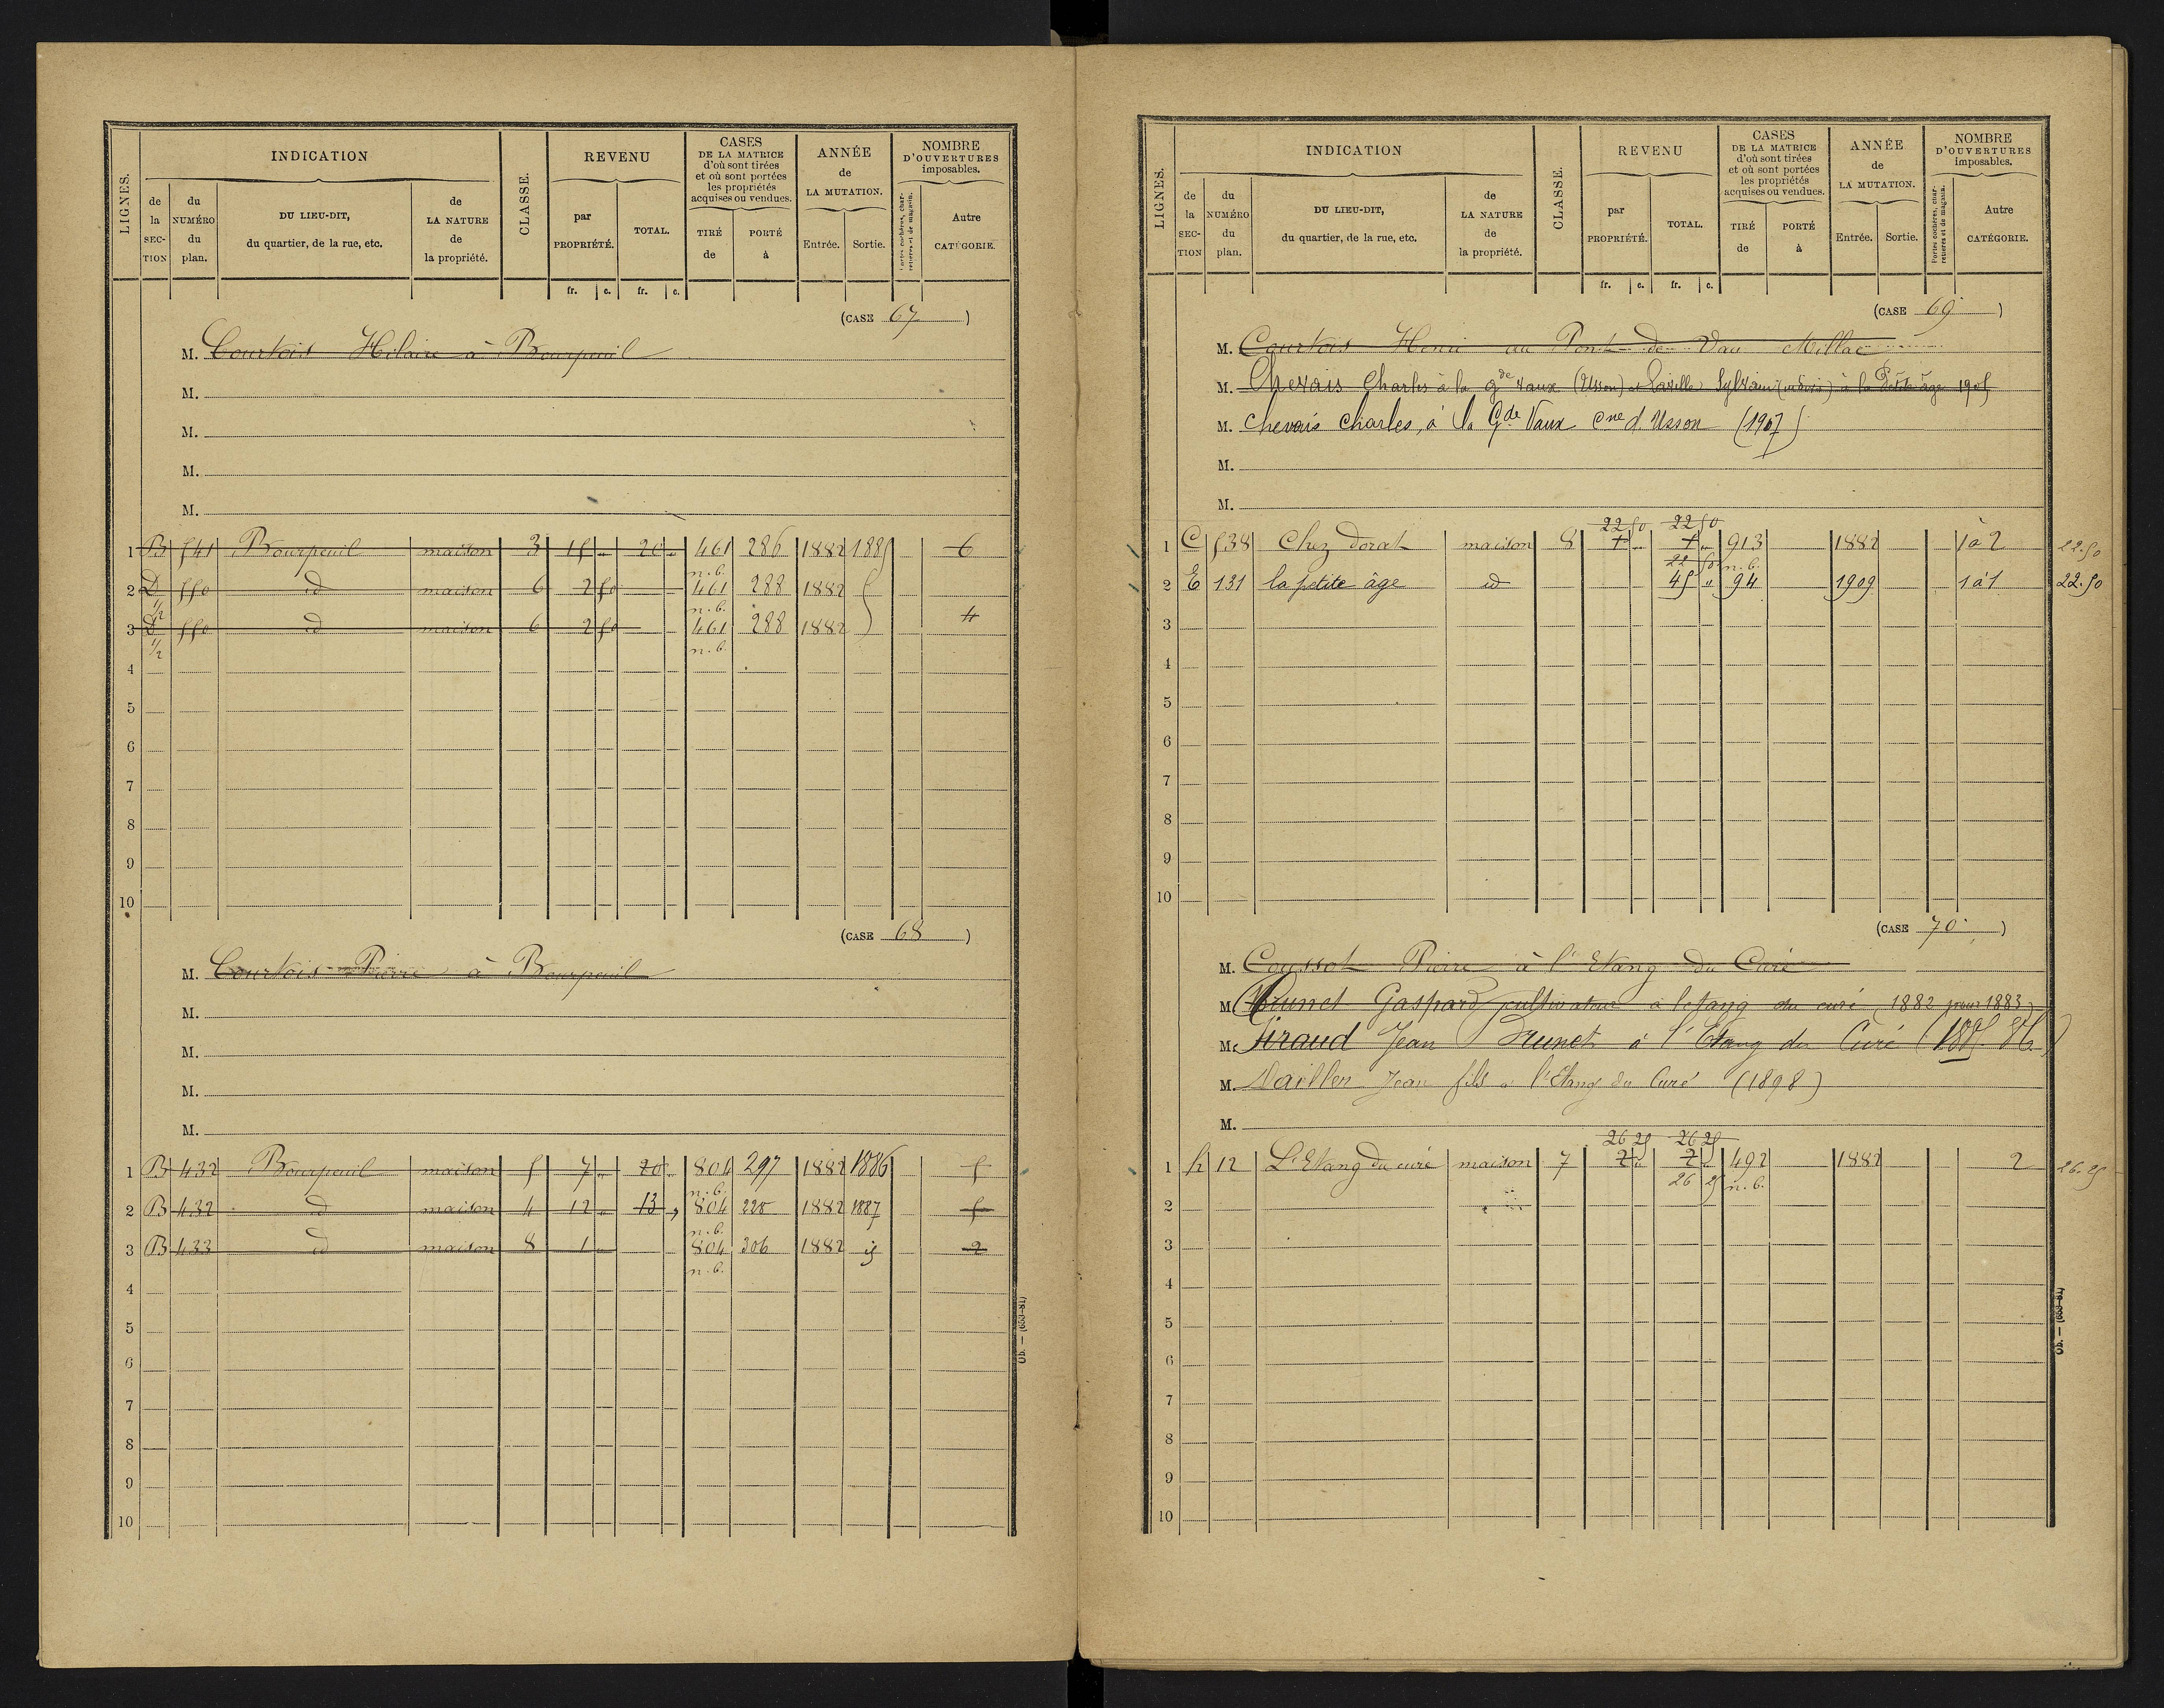 LIGNES.
INDICATION
CLASSE.
REVENU
CASES
DE LA MATRICE
d'où sont tirées
et où sont portées
les propriétés
acquises ou vendues.
ANNÉE
de
LA MUTATION.
NOMBRE
D'OUVERTURES
imposables.
de la SEC-TION
du NUMÉRO du plan.
DU LIEU-DIT,
du quartier, de la rue, etc.
de LA NATURE de la propriété.
par PROPRIÉTÉ.
TOTAL.
TIRÉ de
PORTÉ à
Entrée.
Sortie.
Portes cochères, charretières et de magasin.
Autre CATÉGORIE.
fr. c. fr. c.
(CASE 67)
M. Courtois Hilaire à Bourpeuil
M.
M.
M.
M.
1 B 541 Bourpeuil maison 3 15 " 20 " 461 286 1882 1885 6
n.b.
2 D 550 id maison 6 2 50 461 288 1882
1/2 n.b.
3 D 550 id maison 6 2 50 461 288 1882 4
1/2 n.b.
4
5
6
7
8
9
10
(CASE 68)
M. Courtois Pierre à Bourpeuil
M.
M.
M.
M.
1 B 432 Bourpeuil maison 5 7 " 20 " 804 297 1882 1886 5
n.b.
2 B 432 id maison 4 12 " 13 " 804 220 1882 1887 5
n.b.
3 B 433 id maison 8 1 " 804 306 1882 id 2
n.b.
4
5
6
7
8
9
10
LIGNES.
INDICATION
CLASSE.
REVENU
CASES
DE LA MATRICE
d'où sont tirées
et où sont portées
les propriétés
acquises ou vendues.
ANNÉE
de
LA MUTATION.
NOMBRE
D'OUVERTURES
imposables.
de la SEC-TION
du NUMÉRO du plan.
DU LIEU-DIT,
du quartier, de la rue, etc.
de LA NATURE de la propriété.
par PROPRIÉTÉ.
TOTAL.
TIRÉ de
PORTÉ à
Entrée.
Sortie.
Portes cochères, charretières et de magasin.
Autre CATÉGORIE.
fr. c. fr. c.
(CASE 69)
M. Courtois Henri au Pont de Vau Millac
M. Chevais Charles à la gde vaux (Usson) et Sylvain à la Petite âge 1905
M. Chevais Charles, à la Gde Vaux Cne d'Usson (1907)
M.
M.
22 50 22 50
1 C 538 Chez Dorat maison 8 7 " 7 " 913 1882 1 à 2 22.50
22 50 n.b.
2 E 131 la petite âge id 45 " 94 1909 1 à 1 22.50
3
4
5
6
7
8
9
10
(CASE 70)
M. Coussot Pierre à l'Etang du Curé
M. Brunet Gaspard cultivateur à l'etang du curé (1882 pour 1883)
M. Giraud Jean Brunet à l'Etang du Curé
M. Vaillen Jean fils à l'Etang du Curé (1898)
M.
26 25 26 25
1 h 12 L'Etang du curé maison 7 2 " 2 " 492 1882 2 26.25
26 25 n.b.
2
3
4
5
6
7
8
9
10